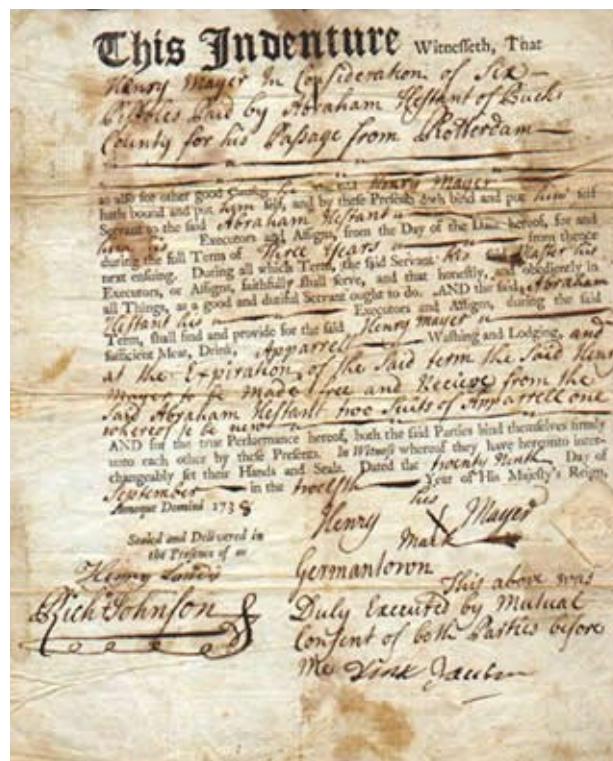 This Indenture Witnesseth, That
Henry Mayer In Consideration of Six
Pistoles Paid by Abraham Hestant of Bucks
County for his Passage from Rotterdam
as also for other good Causes he the said Henry Mayer
hath bound and put him self, and by these Presents doth bind and put him self
Servant to the said Abraham Hestant
him his Executors and Assigns, from the Day of the Date hereof, for and
during the full Term of Three Years from thence
next ensuing. During all which Term, the said Servant his said Master his
Executors, or Assigns, faithfully shall serve, and that honestly, and obediently in
all Things, as a good and dutiful Servant ought to do. AND the said Abraham
Hestant his Executors and Assigns, during the said
Term, shall find and provide for the said Henry Mayer
sufficient Meat, Drink, Apparrell Washing and Lodging, and
at the Expiration of the said term the Said Henry
Mayer to be Made free and Recieve from the
said Abraham Hestant two Suits of Apparrell one
whereof to be new
AND for the true Performance hereof, both the said Parties bind themselves firmly
unto each other by these Presents. In Witness whereof they have hereunto inter-
changeably set their Hands and Seals. Dated the twenty Ninth Day of
September in the twelfth Year of His Majesty's Reign,
Annoque Domini 1738
his
Henry X Mayer
Mark
Sealed and Delivered in
the Presence of us
Henry
Rich Johnson
Germantown
This above was
Duly Executed by Mutual
Consent of both Parties before
Me